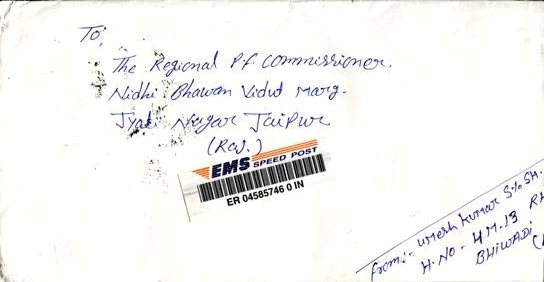 To,
The Regional Pf. Commissioner.
Nidhi Bhawan Vidut Marg.
Jyoti Nagar Jaipur
(Raj.)
EMS SPEED POST
ER 04585746 0 IN
from:- Umesh Kumar S/o SH.
H.NO- 4M-13 RH
BHIWADI (